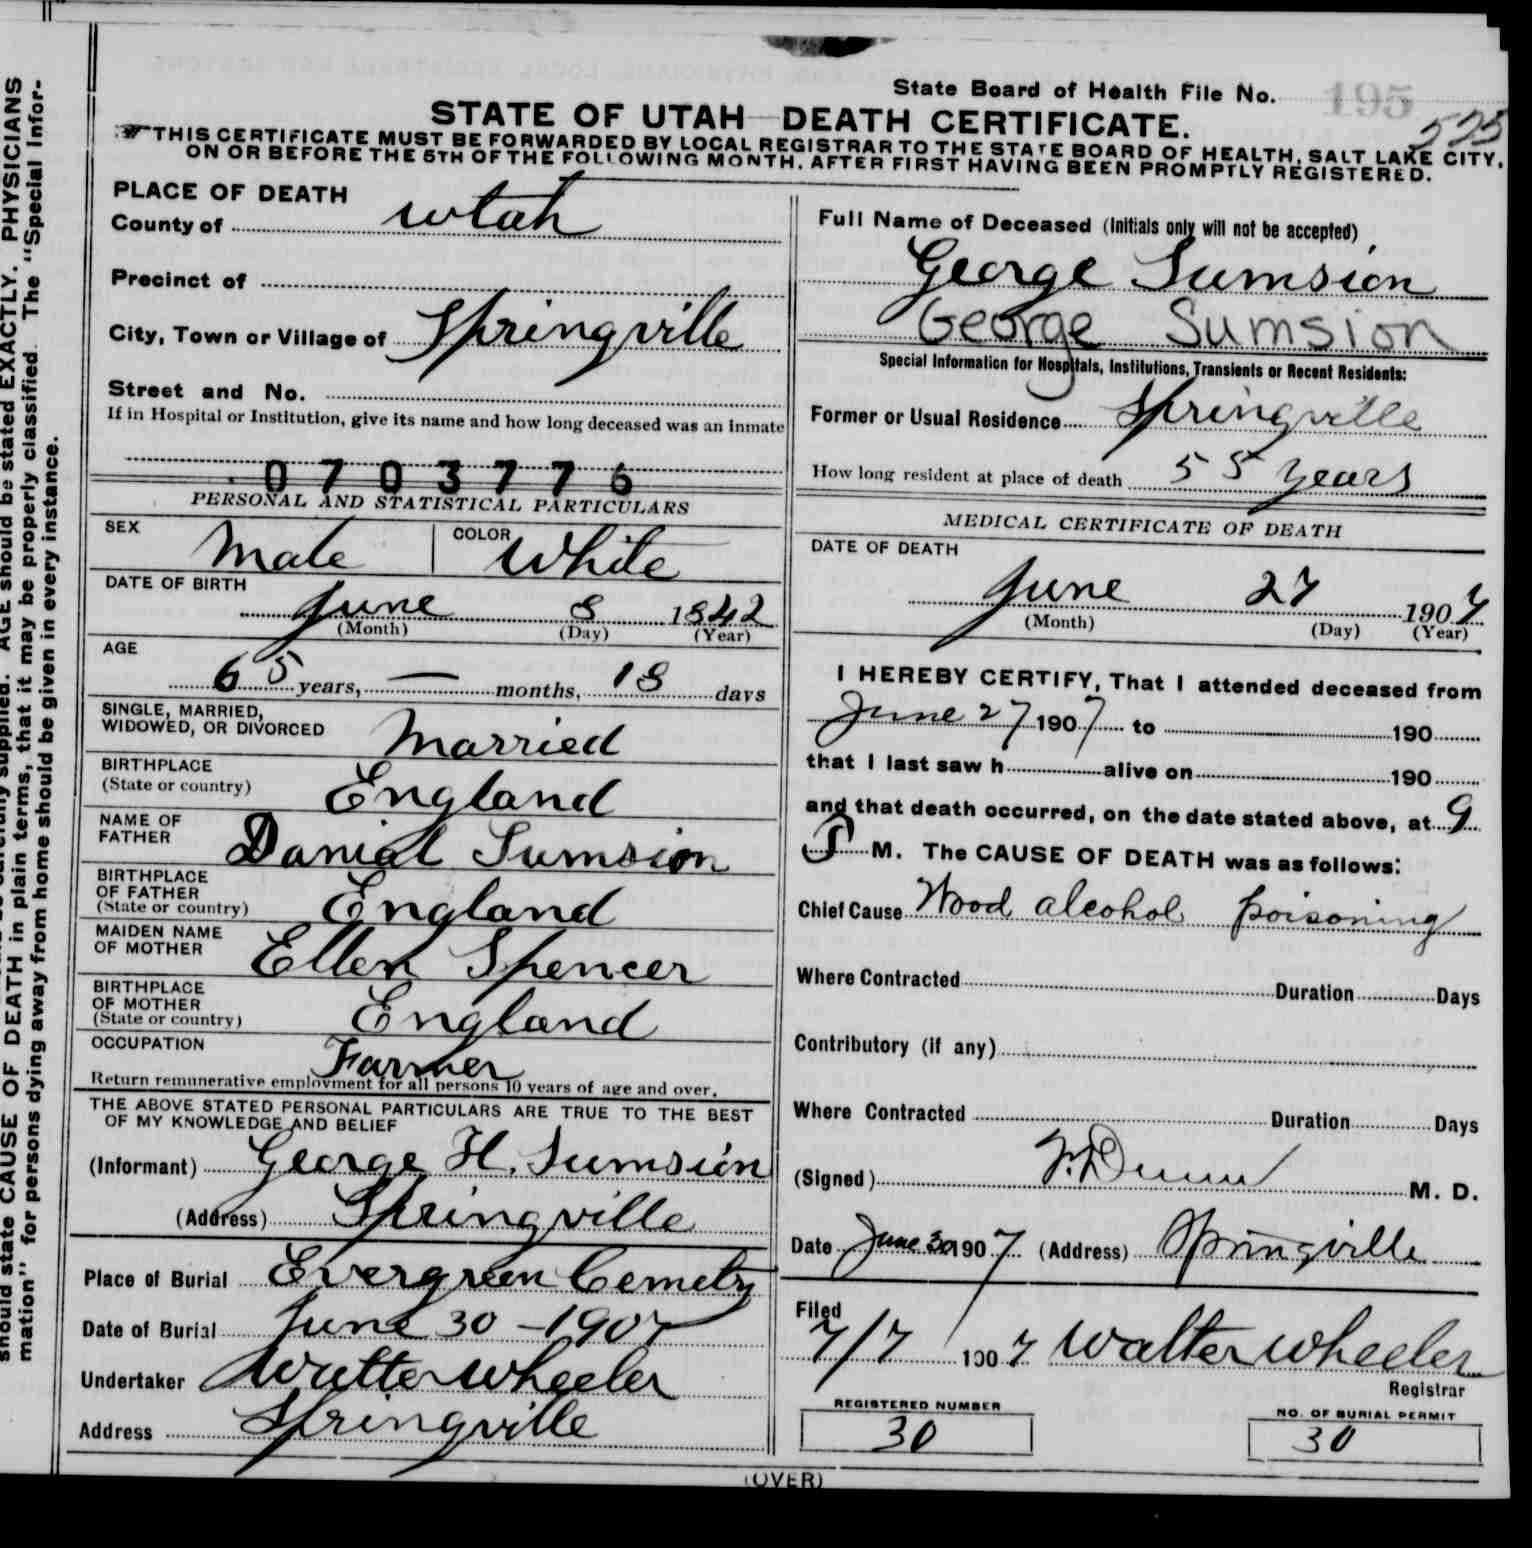 State Board of Health File No. 195
575
STATE OF UTAH DEATH CERTIFICATE.
THIS CERTIFICATE MUST BE FORWARDED BY LOCAL REGISTRAR TO THE STATE BOARD OF HEALTH, SALT LAKE CITY,
ON OR BEFORE THE 5TH OF THE FOLLOWING MONTH, AFTER FIRST HAVING BEEN PROMPTLY REGISTERED.
PLACE OF DEATH
County of Utah
Precinct of
City, Town or Village of Springville
Street and No.
If in Hospital or Institution, give its name and how long deceased was an inmate
0703776
PERSONAL AND STATISTICAL PARTICULARS
SEX Male COLOR White
DATE OF BIRTH
June 8 1842
(Month) (Day) (Year)
AGE
65 years, — months, 18 days
SINGLE, MARRIED,
WIDOWED, OR DIVORCED Married
BIRTHPLACE
(State or country) England
NAME OF
FATHER Danial Sumsion
BIRTHPLACE
OF FATHER
(State or country) England
MAIDEN NAME
OF MOTHER Ellen Spencer
BIRTHPLACE
OF MOTHER
(State or country) England
OCCUPATION Farmer
Return remunerative employment for all persons 10 years of age and over.
THE ABOVE STATED PERSONAL PARTICULARS ARE TRUE TO THE BEST
OF MY KNOWLEDGE AND BELIEF
(Informant) George H. Sumsion
(Address) Springville
Place of Burial Evergreen Cemetry
Date of Burial June 30 - 1907
Undertaker Walter Wheeler
Address Springville
Full Name of Deceased (Initials only will not be accepted)
George Sumsion
George Sumsion
Special Information for Hospitals, Institutions, Transients or Recent Residents:
Former or Usual Residence Springville
How long resident at place of death 55 years
MEDICAL CERTIFICATE OF DEATH
DATE OF DEATH
June 27 1907
(Month) (Day) (Year)
I HEREBY CERTIFY, That I attended deceased from
June 27 1907 to 190
that I last saw h alive on 190
and that death occurred, on the date stated above, at 9
P M. The CAUSE OF DEATH was as follows:
Chief Cause Wood alcohol poisoning
Where Contracted Duration Days
Contributory (if any)
Where Contracted Duration Days
(Signed) F. Dunn M. D.
Date June 30 1907 (Address) Springville
Filed
7/7 1907 Walter Wheeler
Registrar
REGISTERED NUMBER
30
NO. OF BURIAL PERMIT
30
(OVER)
supplied. AGE should be stated EXACTLY. PHYSICIANS
should state CAUSE OF DEATH in plain terms, that it may be properly classified. The "Special Infor-
mation" for persons dying away from home should be given in every instance.